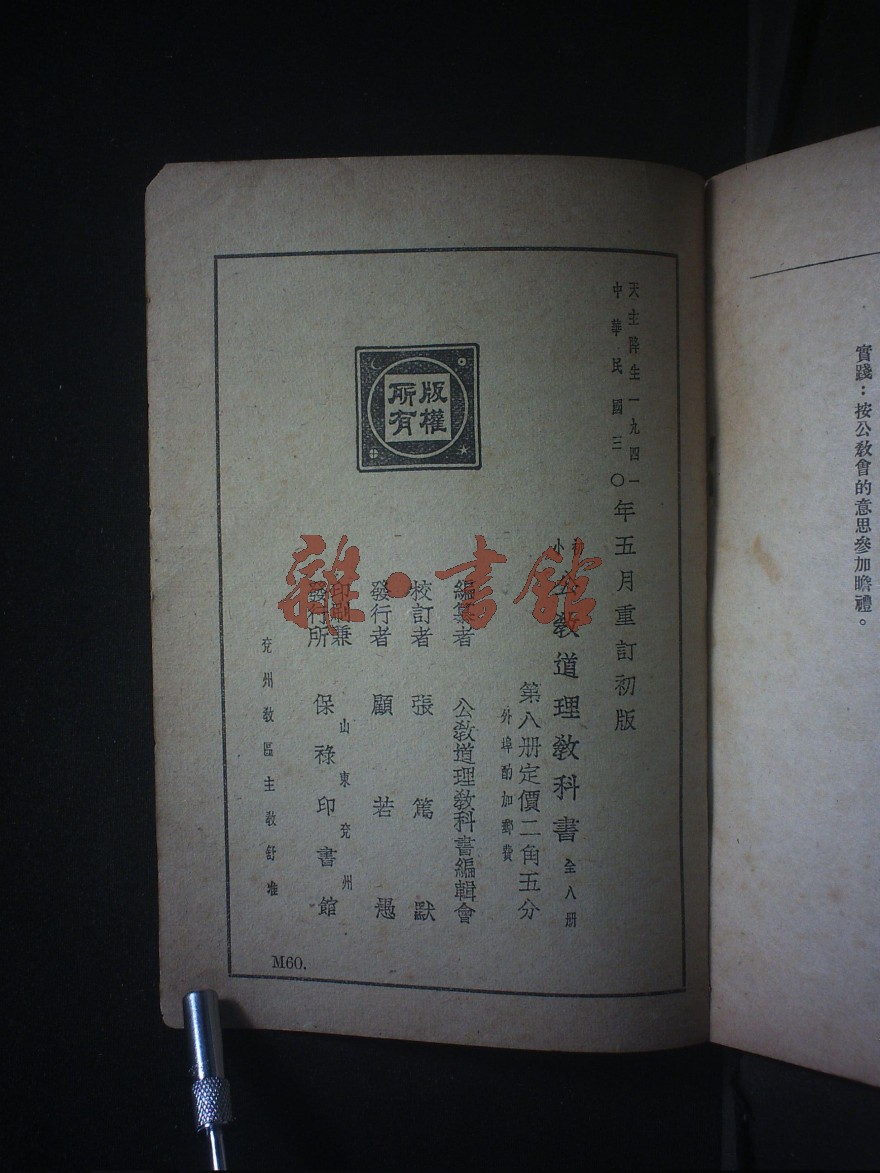 實踐：按公敎會的意思參加瞻禮。
天主降生一九四一
中華民國三〇年五月重訂初版
初小
公敎道理敎科書 全八册
第八册定價二角五分
外埠酌加郵費
編纂者 公敎道理敎科書編輯會
校訂者 張篤默
發行者 顧若愚
印刷兼
發行所
山東兗州
保祿印書館
兗州敎區主敎舒准
版權
所有
M60.
雜·書館